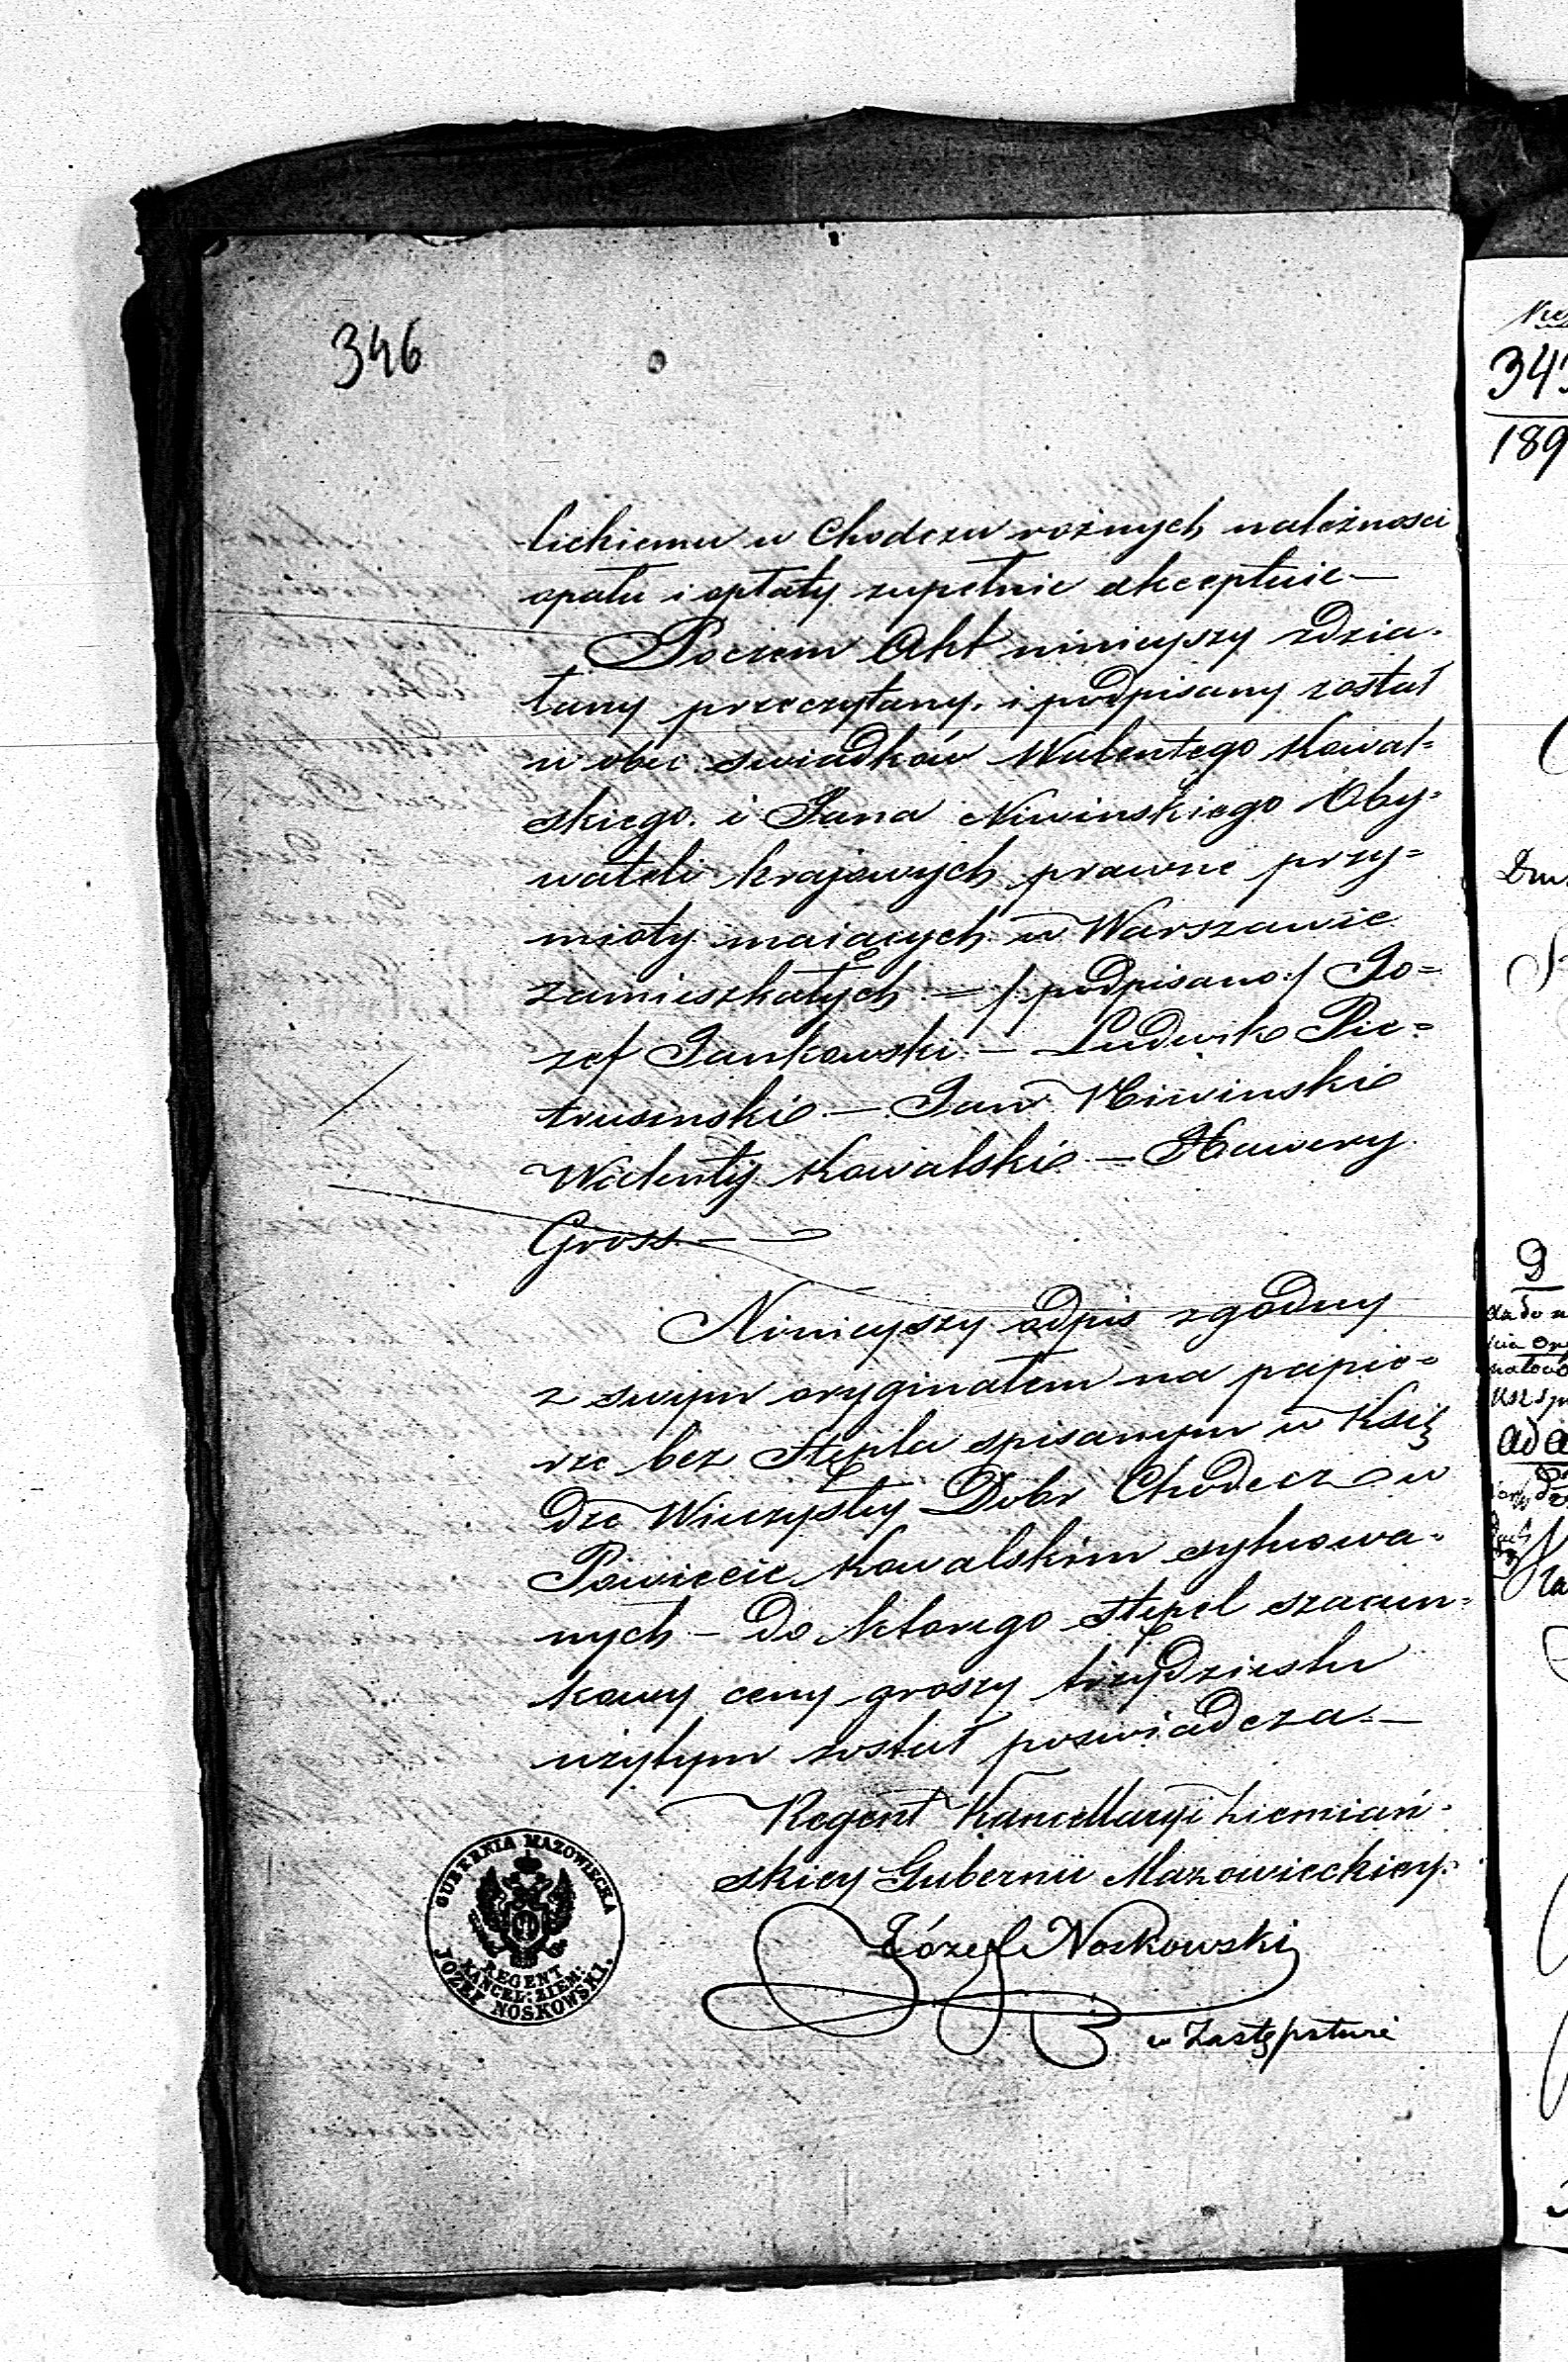 346
lickiemu w Chodczu rożnych należnosci
opału i opłaty zupełnie akceptuie —
Poczem Akt ninieyszy zdzia-
łany przeczytany i podpisany został
w obec swiadków Walentego Kowal=
skiego i Jana Niwinskiego Oby=
wateli krajowych prawne przy=
mioty maiących w Warszawie
zamieszkałych — / podpisano / Jo=
zef Jankowski — Ludwik Pie=
trusznski — Jan Niwinski
Walenty Kowalski — Xawery
Gross —
Ninieyszy odpis zgodny
z swym oryginałem na papie=
rze bez Stępla spisanym w Księ
dze Wieczystey Dobr Chodecz w
Powiecie Kowalskim sytuowa=
nych — do ktorego stępel szacun=
kowy ceny groszy trzydziestu
użytym został poswiadcza. —
Regent Kancellaryi Ziemiań-
skiey Gubernii Mazowieckiey.
Józef Noskowski
w Zastępstwie
GUBERNIA MAZOWIECKA
REGENT
KANCEL: ZIEM:
JÓZEF NOSKOWSKI.
9